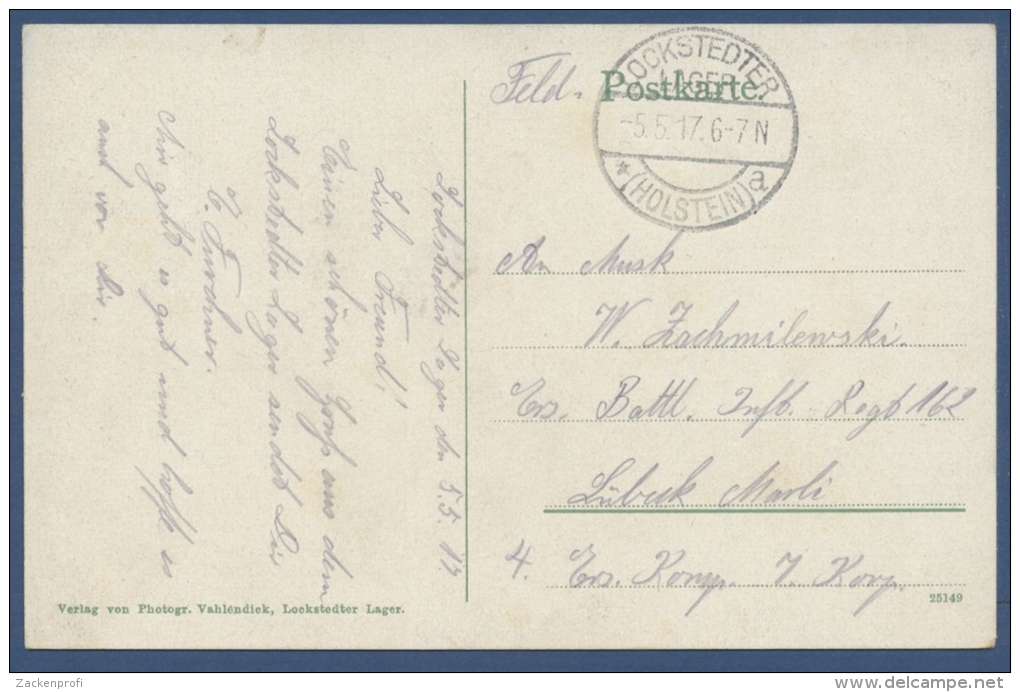 Lockstedter Lager den 5.5.17
Lieber Freund!
Einen schönen Gruß aus dem
Lockstedter Lager sendet Dir
Mir geht es gut und hoffe es
auch von Dir.
Feld-
Postkarte.
LOCKSTEDTER
LAGER
-5.5.17.6-7N
*(HOLSTEIN)a
An Musk
W. Zachmilewski.
Ers. Battl. Inft. Regt 162
Lübeck Marli
4. Ers. Komp. I. Korp.
Verlag von Photogr. Vahléndick, Lockstedter Lager.
25149
Zackenprofi
www.delcampe.net